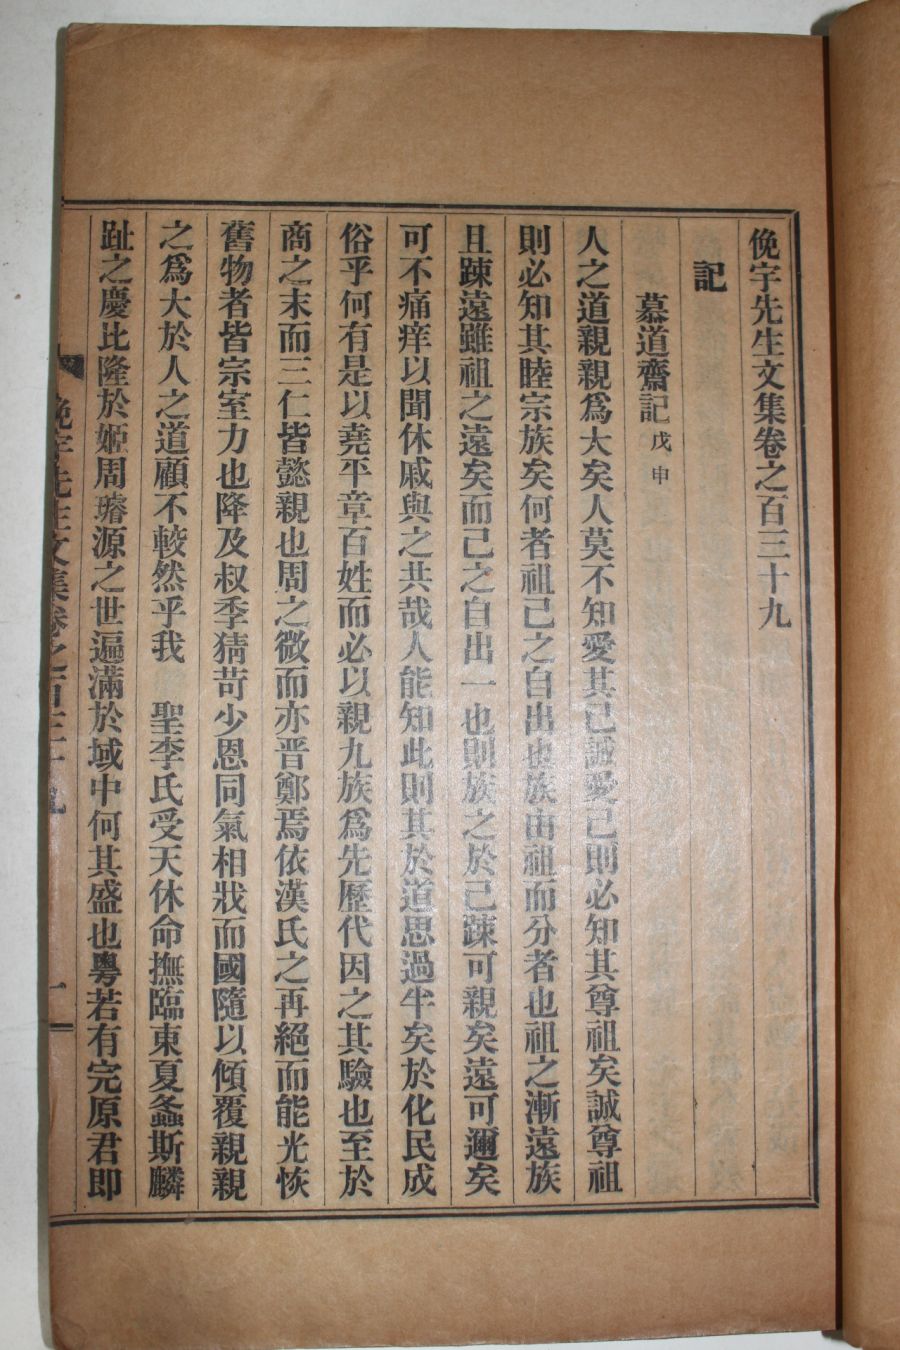 俛宇先生文集卷之百三十九
記
慕道齋記戊申
人之道親親爲大矣人莫不知愛其己誠愛己則必知其尊祖矣誠尊祖
則必知其睦宗族矣何者祖己之自出也族由祖而分者也祖之漸遠族
且踈遠雖祖之遠矣而己之自出一也則族之於己踈可親矣遠可邇矣
可不痛痒以聞休戚與之共哉人能知此則其於道思過半矣於化民成
俗乎何有是以堯平章百姓而必以親九族爲先歷代因之其驗也至於
商之末而三仁皆懿親也周之微而亦晋鄭焉依漢氏之再絕而能光恢
舊物者皆宗室力也降及叔季猜苛少恩同氣相戕而國隨以傾覆親親
之爲大於人之道顧不較然乎我　聖李氏受天休命撫臨東夏螽斯麟
趾之慶比隆於姬周璿源之世遍滿於域中何其盛也粤若有完原君即
俛宇先生文集卷之百三十九
一